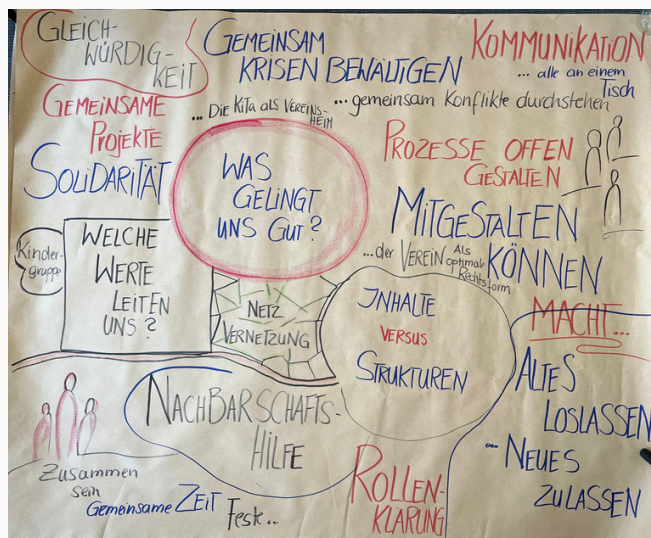 GLEICH-
WÜRDIG-
KEIT
GEMEINSAM
KRISEN BEWÄLTIGEN
KOMMUNIKATION
... alle an einem
Tisch
GEMEINSAME
PROJEKTE
... DIE KITA ALS VEREINS-
HEIM
... gemeinsam Konflikte durchstehen
SOLIDARITÄT
WAS
GELINGT
UNS GUT?
PROZESSE OFFEN
GESTALTEN
MITGESTALTEN
KÖNNEN
...der VEREIN Als
optimale
Rechtsform
Kinder-
gruppe
WELCHE
WERTE
LEITEN
UNS?
NETZ
VERNETZUNG
INHALTE
VERSUS
STRUKTUREN
MACHT...
ALTES
LOSLASSEN
... NEUES
ZULASSEN
NACHBARSCHAFTS-
HILFE
Zusammen
sein
Gemeinsame ZEIT
Feste..
ROLLEN-
KLÄRUNG